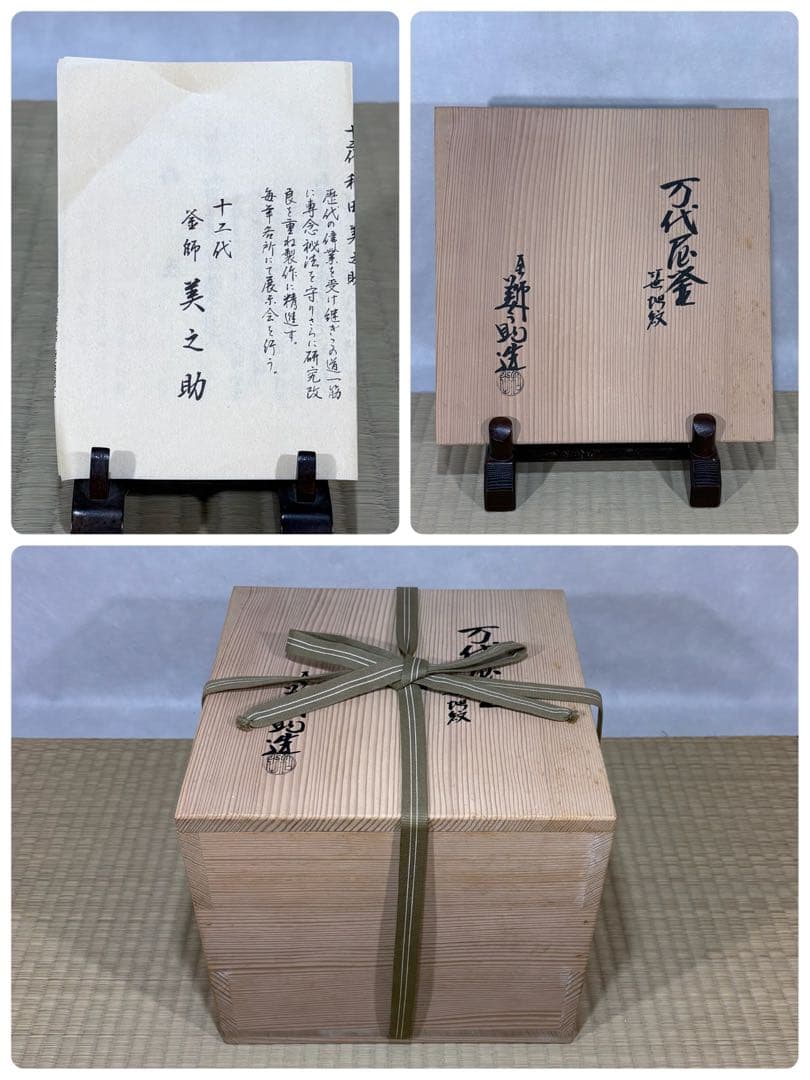 十二代 和田美之助
歴代の偉業を受け継ぎこの道一筋
に専念秘法を守りさらに研究改
良を重ね製作に精進す。
毎年各所にて展示会を行う。
十二代
釜師 美之助
万代屋釜
笹地紋
釜師 美之助造
万代
地紋
助造